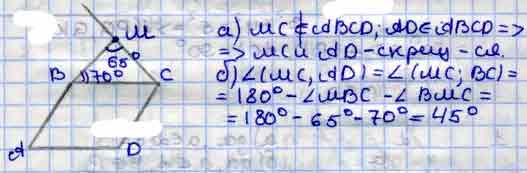 M
65°
B
70°
C
A
D
а) MC ∉ ABCD; AD ∈ ABCD =>
=> MC и AD - скрещ - ся.
б) ∠(MC, AD) = ∠(MC; BC) =
= 180° - ∠MBC - ∠BMC =
= 180° - 65° - 70° = 45°